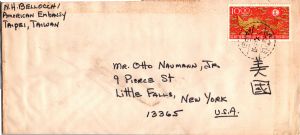 N.H. BELLOCCHI
AMERICAN EMBASSY
TAIPEI, TAIWAN
10.00
MR. OTTO NAUMANN, JR.
9 PIERCE ST
LITTLE FALLS, NEW YORK
13365 U.S.A.
美
國